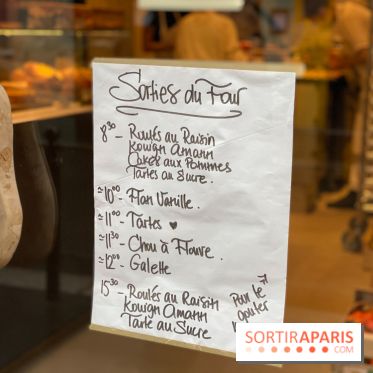 Sorties du Four
8³⁰ - Roulés au Raisin
Kouign Amann
Cakes aux Pommes
Tartes au Sucre.
≈10⁰⁰ - Flan Vanille.
≈11⁰⁰ - Tartes ♥
≈11³⁰ - Chou à Flauve.
≈12⁰⁰ - Galette
15³⁰ - Roulés au Raisin
Kouign Amann
Tarte au Sucre
Pour le
goûter
SORTIRAPARIS
.COM